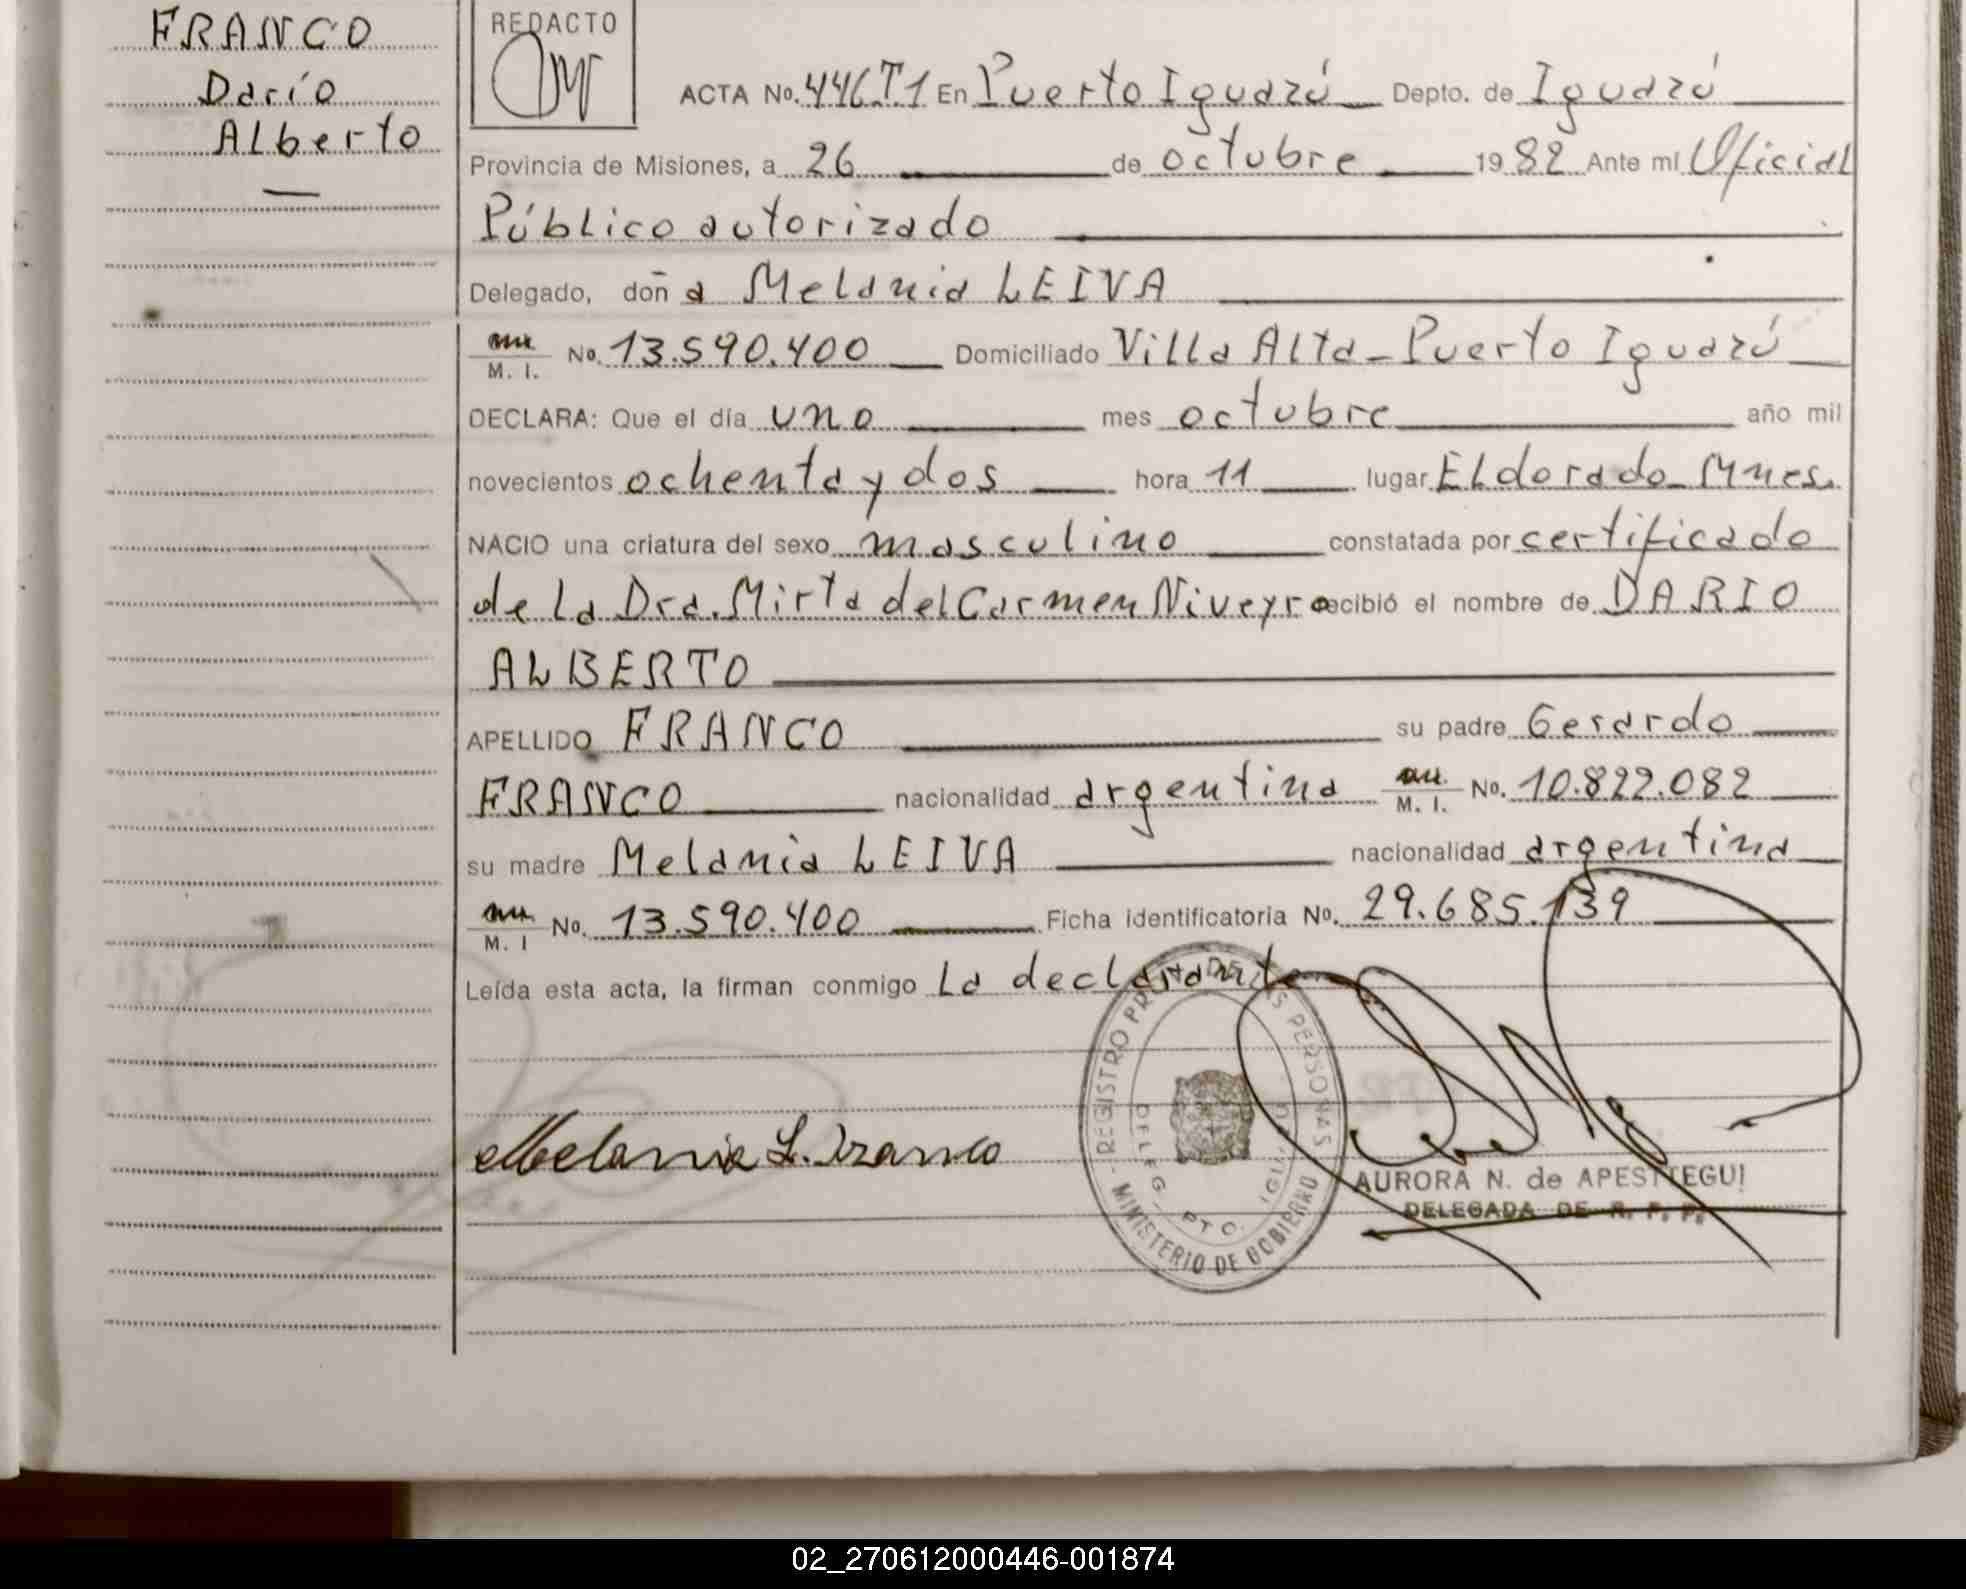 FRANCO
Darío
Alberto
REDACTO
ACTA No. 446.T1 En Puerto Iguazú Depto. de Iguazú
Provincia de Misiones, a 26 de octubre 1982 Ante mí Oficial
Público autorizado
Delegado, doñ a Melania LEIVA
M. I. No. 13.590.400 Domiciliado Villa Alta - Puerto Iguazú
DECLARA: Que el día uno mes octubre año mil
novecientos ochenta y dos hora 11 lugar Eldorado - Mnes.
NACIO una criatura del sexo masculino constatada por certificado
de la Dra. Mirta del Carmen Niveyro recibió el nombre de DARIO
ALBERTO
APELLIDO FRANCO su padre Gerardo
FRANCO nacionalidad argentina M. I. No. 10.822.082
su madre Melania LEIVA nacionalidad argentina
M. I No. 13.590.400 Ficha identificatoria No. 29.685.139
Leída esta acta, la firman conmigo La declarante
Melania L. Franco
REGISTRO PR DE LAS PERSONAS
DELEG. PTO. IGU
MINISTERIO DE GOBIERNO
AURORA N. de APESTEGUI
DELEGADA DE R. P. P.
02_270612000446-001874